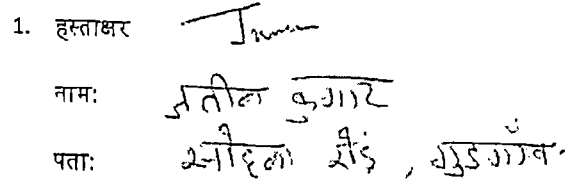 1. हस्ताक्षर
नाम: जतीन कुमार
पता: सोहना रोड़, गुडगाँव.